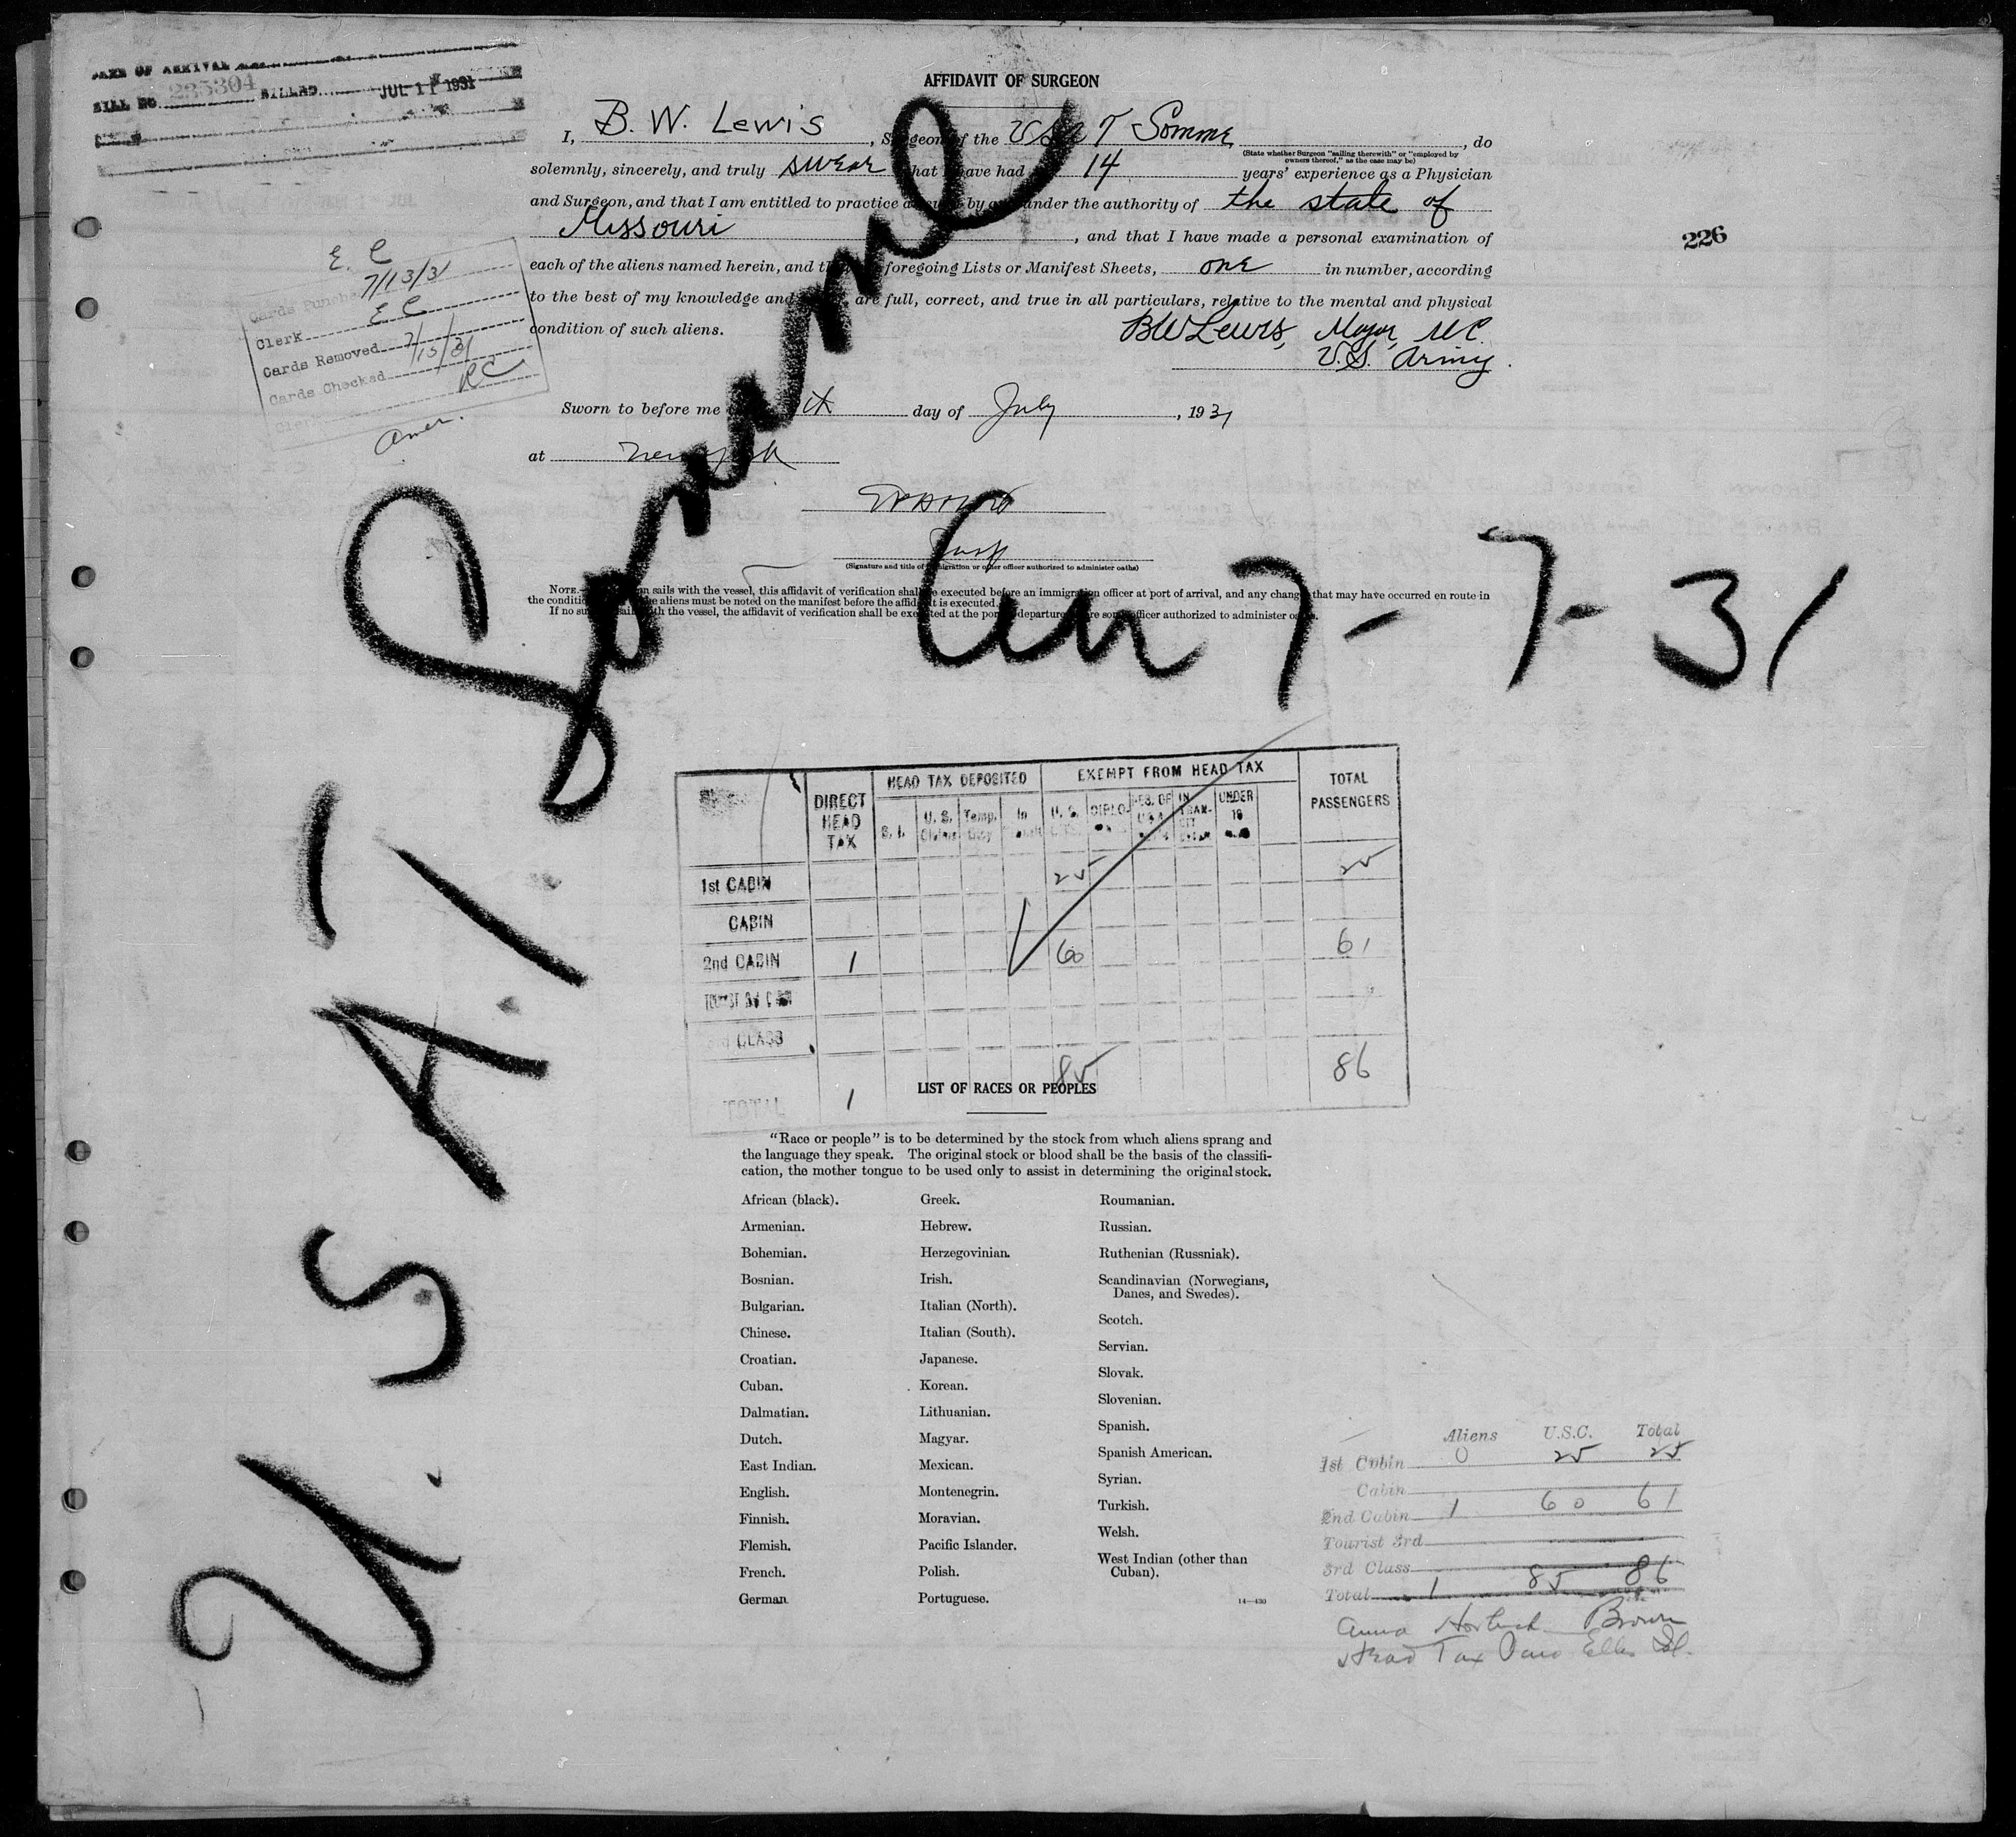 DATE OF ARRIVAL
BILL NO. 235304 BILLED JUL 11 1931
AFFIDAVIT OF SURGEON
I, B. W. Lewis, Surgeon of the USAT Somme, do
(State whether Surgeon "sailing therewith" or "employed by
owners thereof," as the case may be)
solemnly, sincerely, and truly swear that I have had 14 years' experience as a Physician
and Surgeon, and that I am entitled to practice as such by and under the authority of the state of
Missouri, and that I have made a personal examination of
each of the aliens named herein, and that the foregoing Lists or Manifest Sheets, one in number, according
to the best of my knowledge and belief, are full, correct, and true in all particulars, relative to the mental and physical
condition of such aliens.
BW Lewis, Major, M.C.
U.S. Army.
226
E. C
7/13/31
Cards Punched
Clerk E C
Cards Removed 7/15/31
Cards Checked RC
Clerk
Amer.
Sworn to before me day of July, 1931
at New York
(Signature and title of immigration or other officer authorized to administer oaths)
NOTE.—If surgeon sails with the vessel, this affidavit of verification shall be executed before an immigration officer at port of arrival, and any change that may have occurred en route in
the condition of the aliens must be noted on the manifest before the affidavit is executed.
If no surgeon sails with the vessel, the affidavit of verification shall be executed at the port of departure before some officer authorized to administer oaths.
U. S. A. T. Somme
Arr 7-7-31
DIRECT HEAD TAX HEAD TAX DEPOSITED EXEMPT FROM HEAD TAX TOTAL PASSENGERS
S. I. U. S. Temp. In U. S. DIPLO- RES. OF U.S.A. IN TRAN- SIT UNDER 16
1st CABIN 25 25
CABIN
2nd CABIN 1 60 61
TOURIST 3rd CABIN
3rd CLASS
TOTAL 1 85 86
LIST OF RACES OR PEOPLES
"Race or people" is to be determined by the stock from which aliens sprang and
the language they speak. The original stock or blood shall be the basis of the classifi-
cation, the mother tongue to be used only to assist in determining the original stock.
African (black).
Armenian.
Bohemian.
Bosnian.
Bulgarian.
Chinese.
Croatian.
Cuban.
Dalmatian.
Dutch.
East Indian.
English.
Finnish.
Flemish.
French.
German
Greek.
Hebrew.
Herzegovinian.
Irish.
Italian (North).
Italian (South).
Japanese.
Korean.
Lithuanian.
Magyar.
Mexican.
Montenegrin.
Moravian.
Pacific Islander.
Polish.
Portuguese.
Roumanian.
Russian.
Ruthenian (Russniak).
Scandinavian (Norwegians,
Danes, and Swedes).
Scotch.
Servian.
Slovak.
Slovenian.
Spanish.
Spanish American.
Syrian.
Turkish.
Welsh.
West Indian (other than
Cuban).
14—430
Aliens U.S.C. Total
1st Cabin 0 25 25
Cabin
2nd Cabin 1 60 61
Tourist 3rd
3rd Class
Total 1 85 86
Anna Brown
Head Tax Paid Ellis Isl.